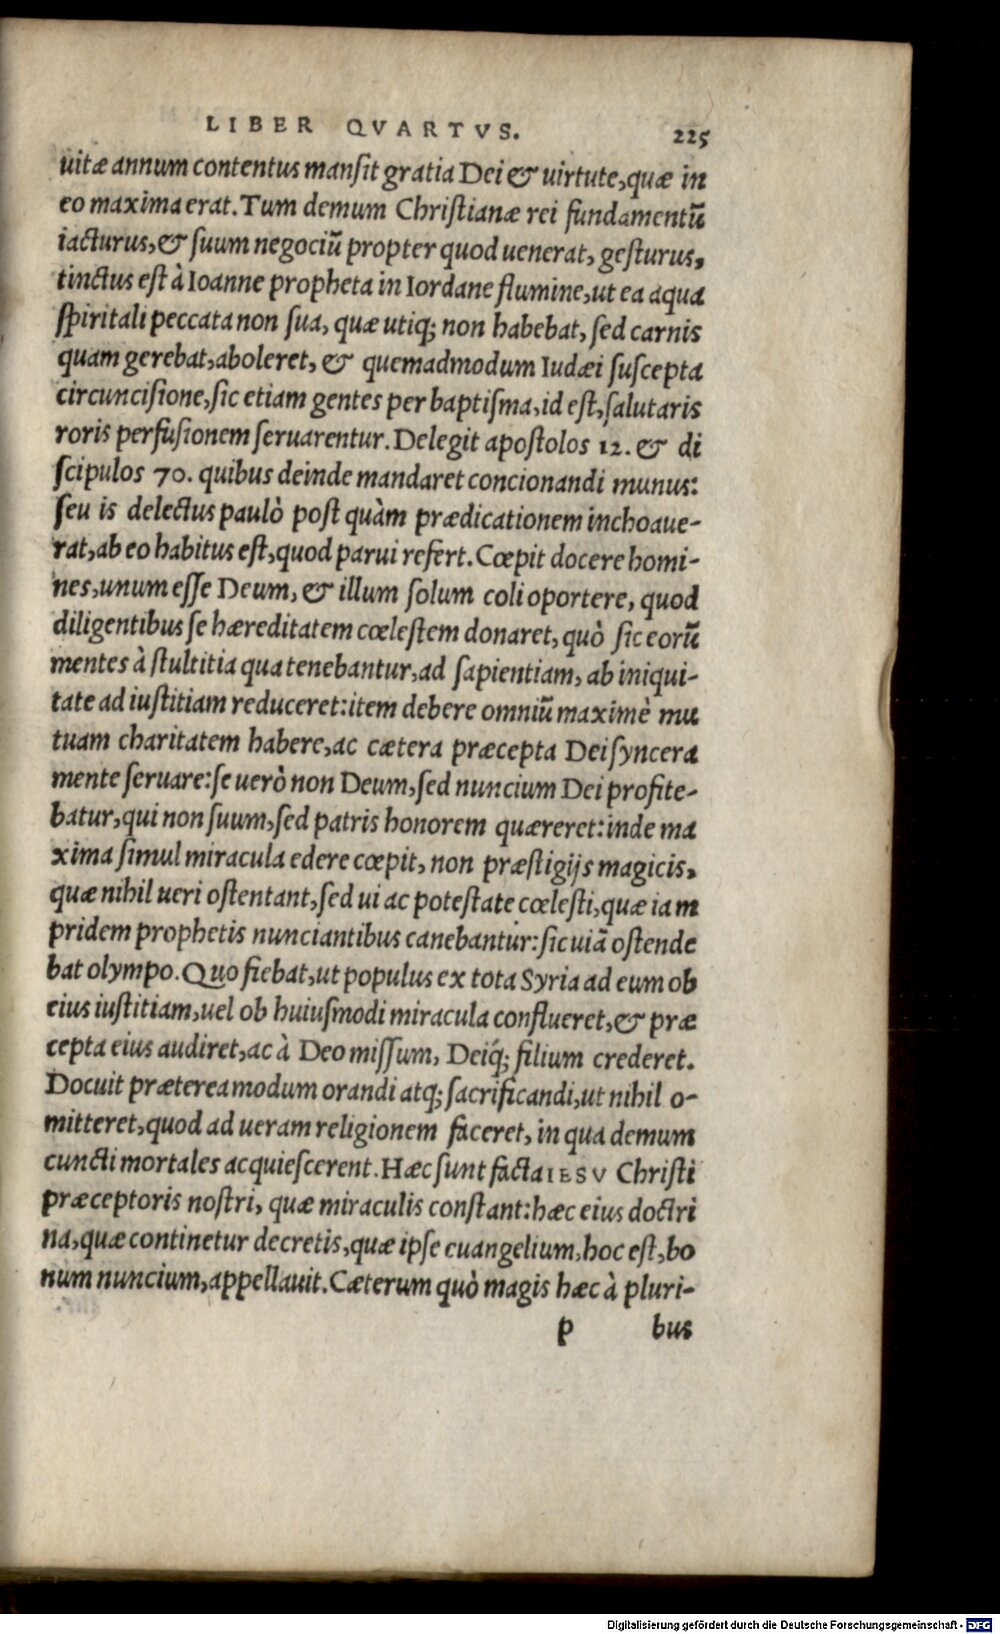 LIBER QVARTVS. 225
uitæ annum contentus manſit gratia Dei & uirtute, quæ in
eo maxima erat. Tum demum Chriſtianæ rei fundamentū
iacturus, & ſuum negociū propter quod uenerat, geſturus,
tinctus eſt à Ioanne propheta in Iordane flumine, ut ea aqua
ſpiritali peccata non ſua, quæ utiq; non habebat, ſed carnis
quam gerebat, aboleret, & quemadmodum Iudæi ſuſcepta
circunciſione, ſic etiam gentes per baptiſma, id eſt, ſalutaris
roris perfuſionem ſeruarentur. Delegit apoſtolos 12. & di
ſcipulos 70. quibus deinde mandaret concionandi munus:
ſeu is delectus paulò poſt quàm prædicationem inchoaue-
rat, ab eo habitus eſt, quod parui refert. Cœpit docere homi-
nes, unum eſſe Deum, & illum ſolum coli oportere, quod
diligentibus ſe hæreditatem cœleſtem donaret, quò ſic eorū
mentes à ſtultitia qua tenebantur, ad ſapientiam, ab iniqui-
tate ad iuſtitiam reduceret: item debere omniū maximè mu
tuam charitatem habere, ac cætera præcepta Dei ſyncera
mente ſeruare: ſe uerò non Deum, ſed nuncium Dei profite-
batur, qui non ſuum, ſed patris honorem quæreret: inde ma
xima ſimul miracula edere cœpit, non præſtigijs magicis,
quæ nihil ueri oſtentant, ſed ui ac poteſtate cœleſti, quæ iam
pridem prophetis nunciantibus canebantur: ſic uiā oſtende
bat olympo. Quo fiebat, ut populus ex tota Syria ad eum ob
eius iuſtitiam, uel ob huiuſmodi miracula conflueret, & præ
cepta eius audiret, ac à Deo miſſum, Deiq́; filium crederet.
Docuit præterea modum orandi atq; ſacrificandi, ut nihil o-
mitteret, quod ad ueram religionem faceret, in qua demum
cuncti mortales acquieſcerent. Hæc ſunt facta IESV Chriſti
præceptoris noſtri, quæ miraculis conſtant: hæc eius doctri
na, quæ continetur decretis, quæ ipſe euangelium, hoc eſt, bo
num nuncium, appellauit. Cæterum quò magis hæc à pluri-
p bus
Digitalisierung gefördert durch die Deutsche Forschungsgemeinschaft - DFG